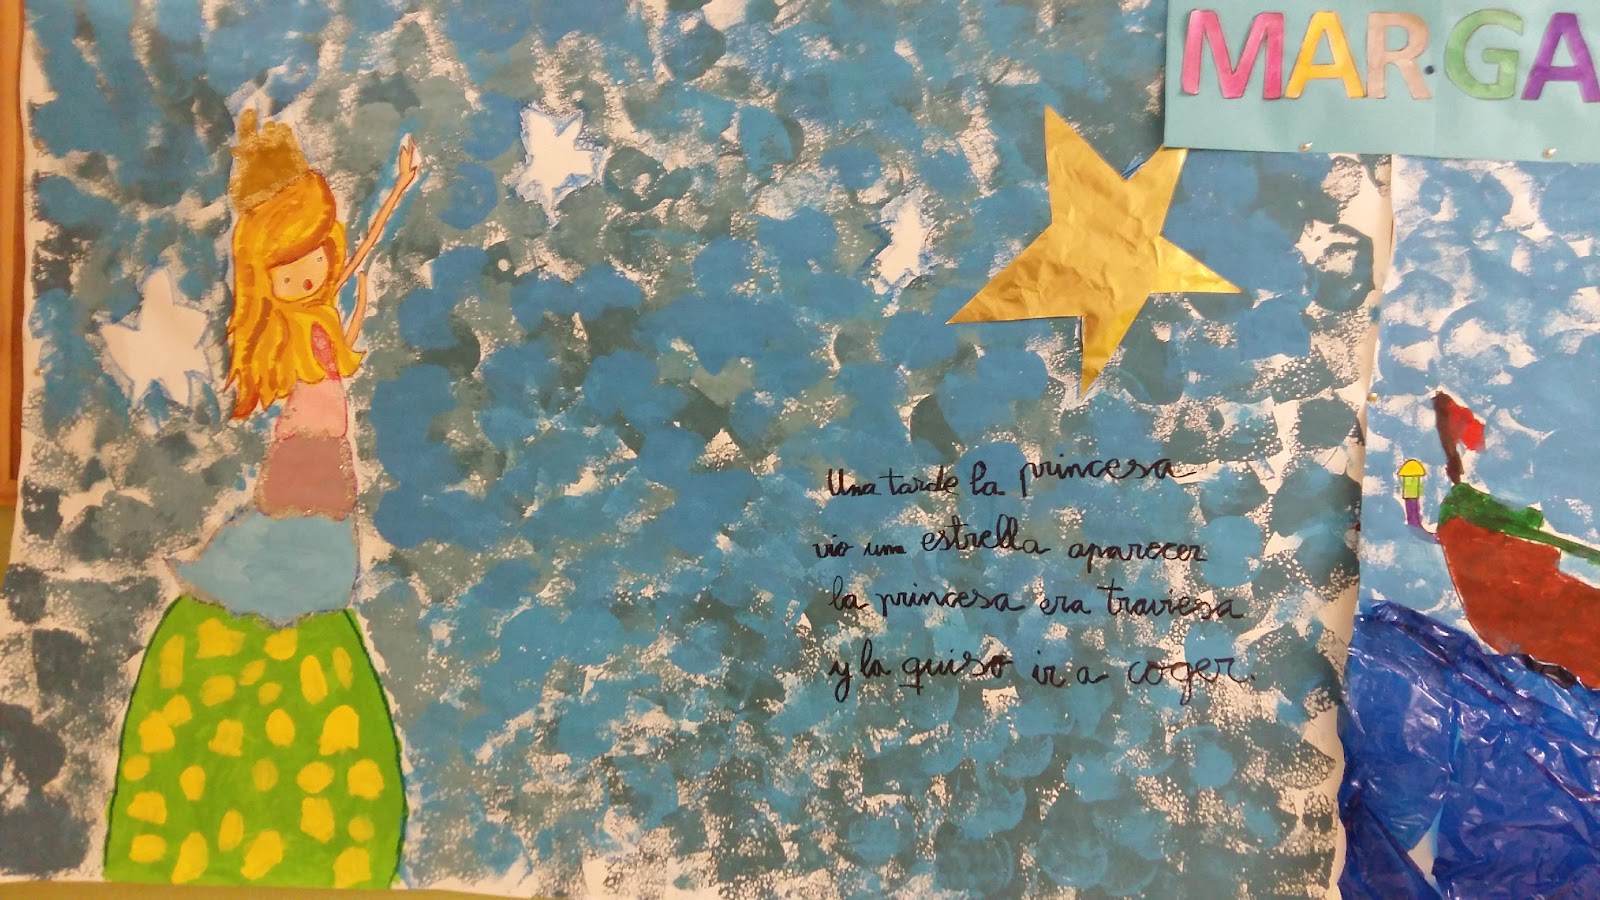 MARGA
Una tarde la princesa
vio una estrella aparecer
la princesa era traviesa
y la quiso ir a coger.